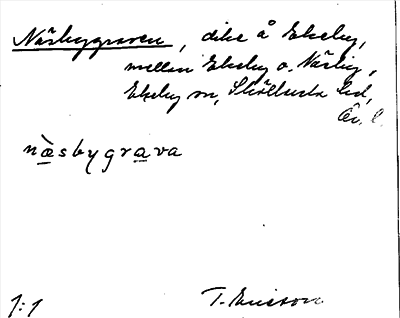 Näsbygraven, dike å Ekeby,
mellan Ekeby o. Näsby,
Ekeby sn, Sköllersta hd,
Ör. l.
næ̀sbygrava
1:1 T. Ericsson